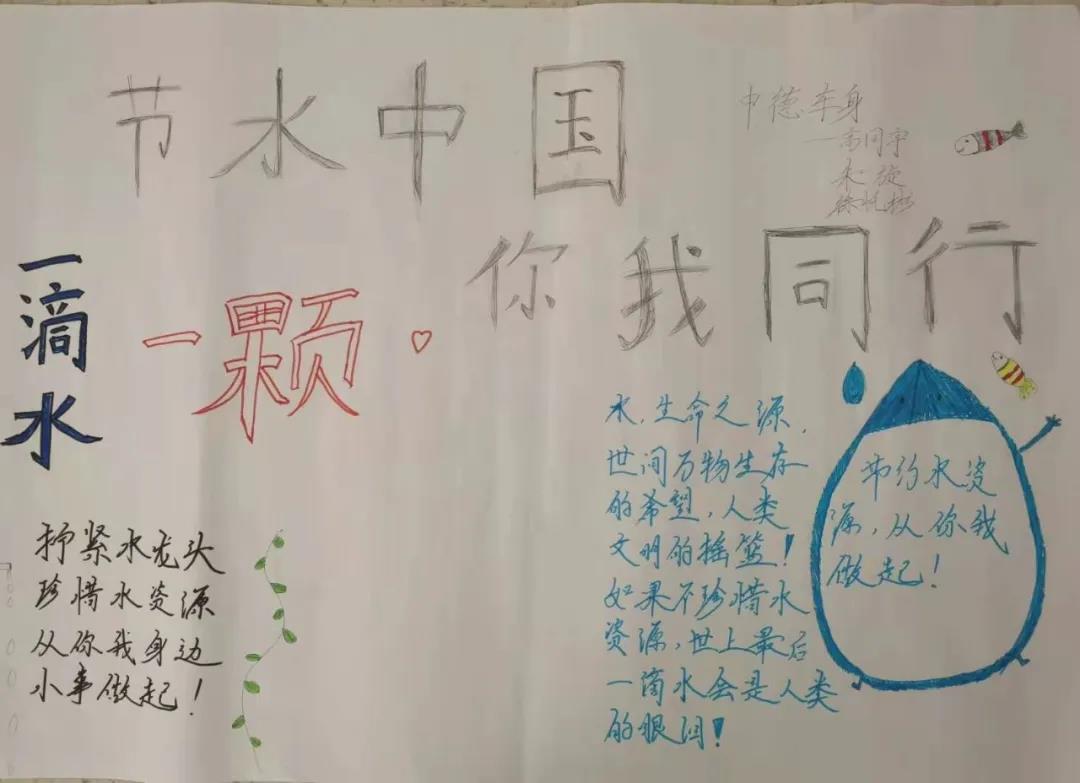 节水中国
中德车身
你我同行
一滴水
一颗
水,生命之源,
世间万物生存
的希望,人类
文明的摇篮!
如果不珍惜水
资源,世上最后
一滴水会是人类
的眼泪!
节约水资
源,从你我
做起!
抒紧水龙头
珍惜水资源
从你我身边
小事做起!